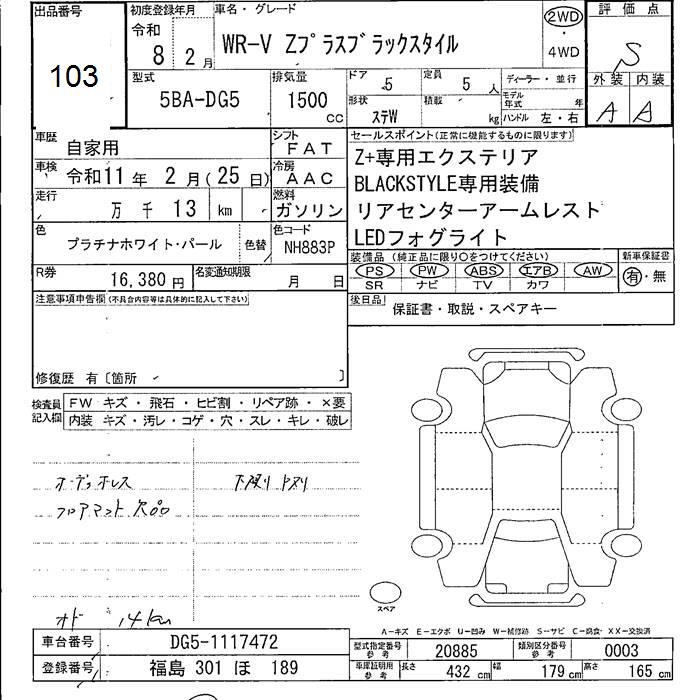 出品番号 初度登録年月 車名・グレード 2WD 評価点
103 令和 8 2月 WR-V Zプラスブラックスタイル ・ 4WD S
型式 排気量 ドア 定員 ディーラー・並行 外装 内装
5BA-DG5 1500 cc 5 5人 モデル年式 年 A A
形状 ステW 積載 kg ハンドル 左・右
車歴 自家用 シフト FAT セールスポイント(正常に機能するものに限ります)
車検 令和11年 2月(25日) 冷房 AAC Z+専用エクステリア
走行 万千13 km 燃料 ガソリン BLACKSTYLE専用装備
リアセンターアームレスト
色 プラチナホワイト・パール 色替 色コード NH883P LEDフォグライト
装備品(純正品に限り○をつけてください) 新車保証書
R券 16,380円 名変通知期限 月 日 PS PW ABS エアB AW 有・無
SR ナビ TV カワ
注意事項申告欄(不具合内容等は具体的に記入して下さい) 後日品 保証書・取説・スペアキー
修復歴 有〔箇所 〕
検査員記入欄 FW キズ・飛石・ヒビ割・リペア跡・×要
内装 キズ・汚レ・コゲ・穴・スレ・キレ・破レ
オーディオレス
フロアマット欠品
オド 14km
スペア
A-キズ E-エクボ U-凹み W-補修跡 S-サビ C-腐食 XX-交換済
車台番号 DG5-1117472 型式指定番号 参考 20885 類別区分番号 参考 0003
登録番号 福島 301 ほ 189 車庫証明用 参考 長さ 432 cm 幅 179 cm 高さ 165 cm